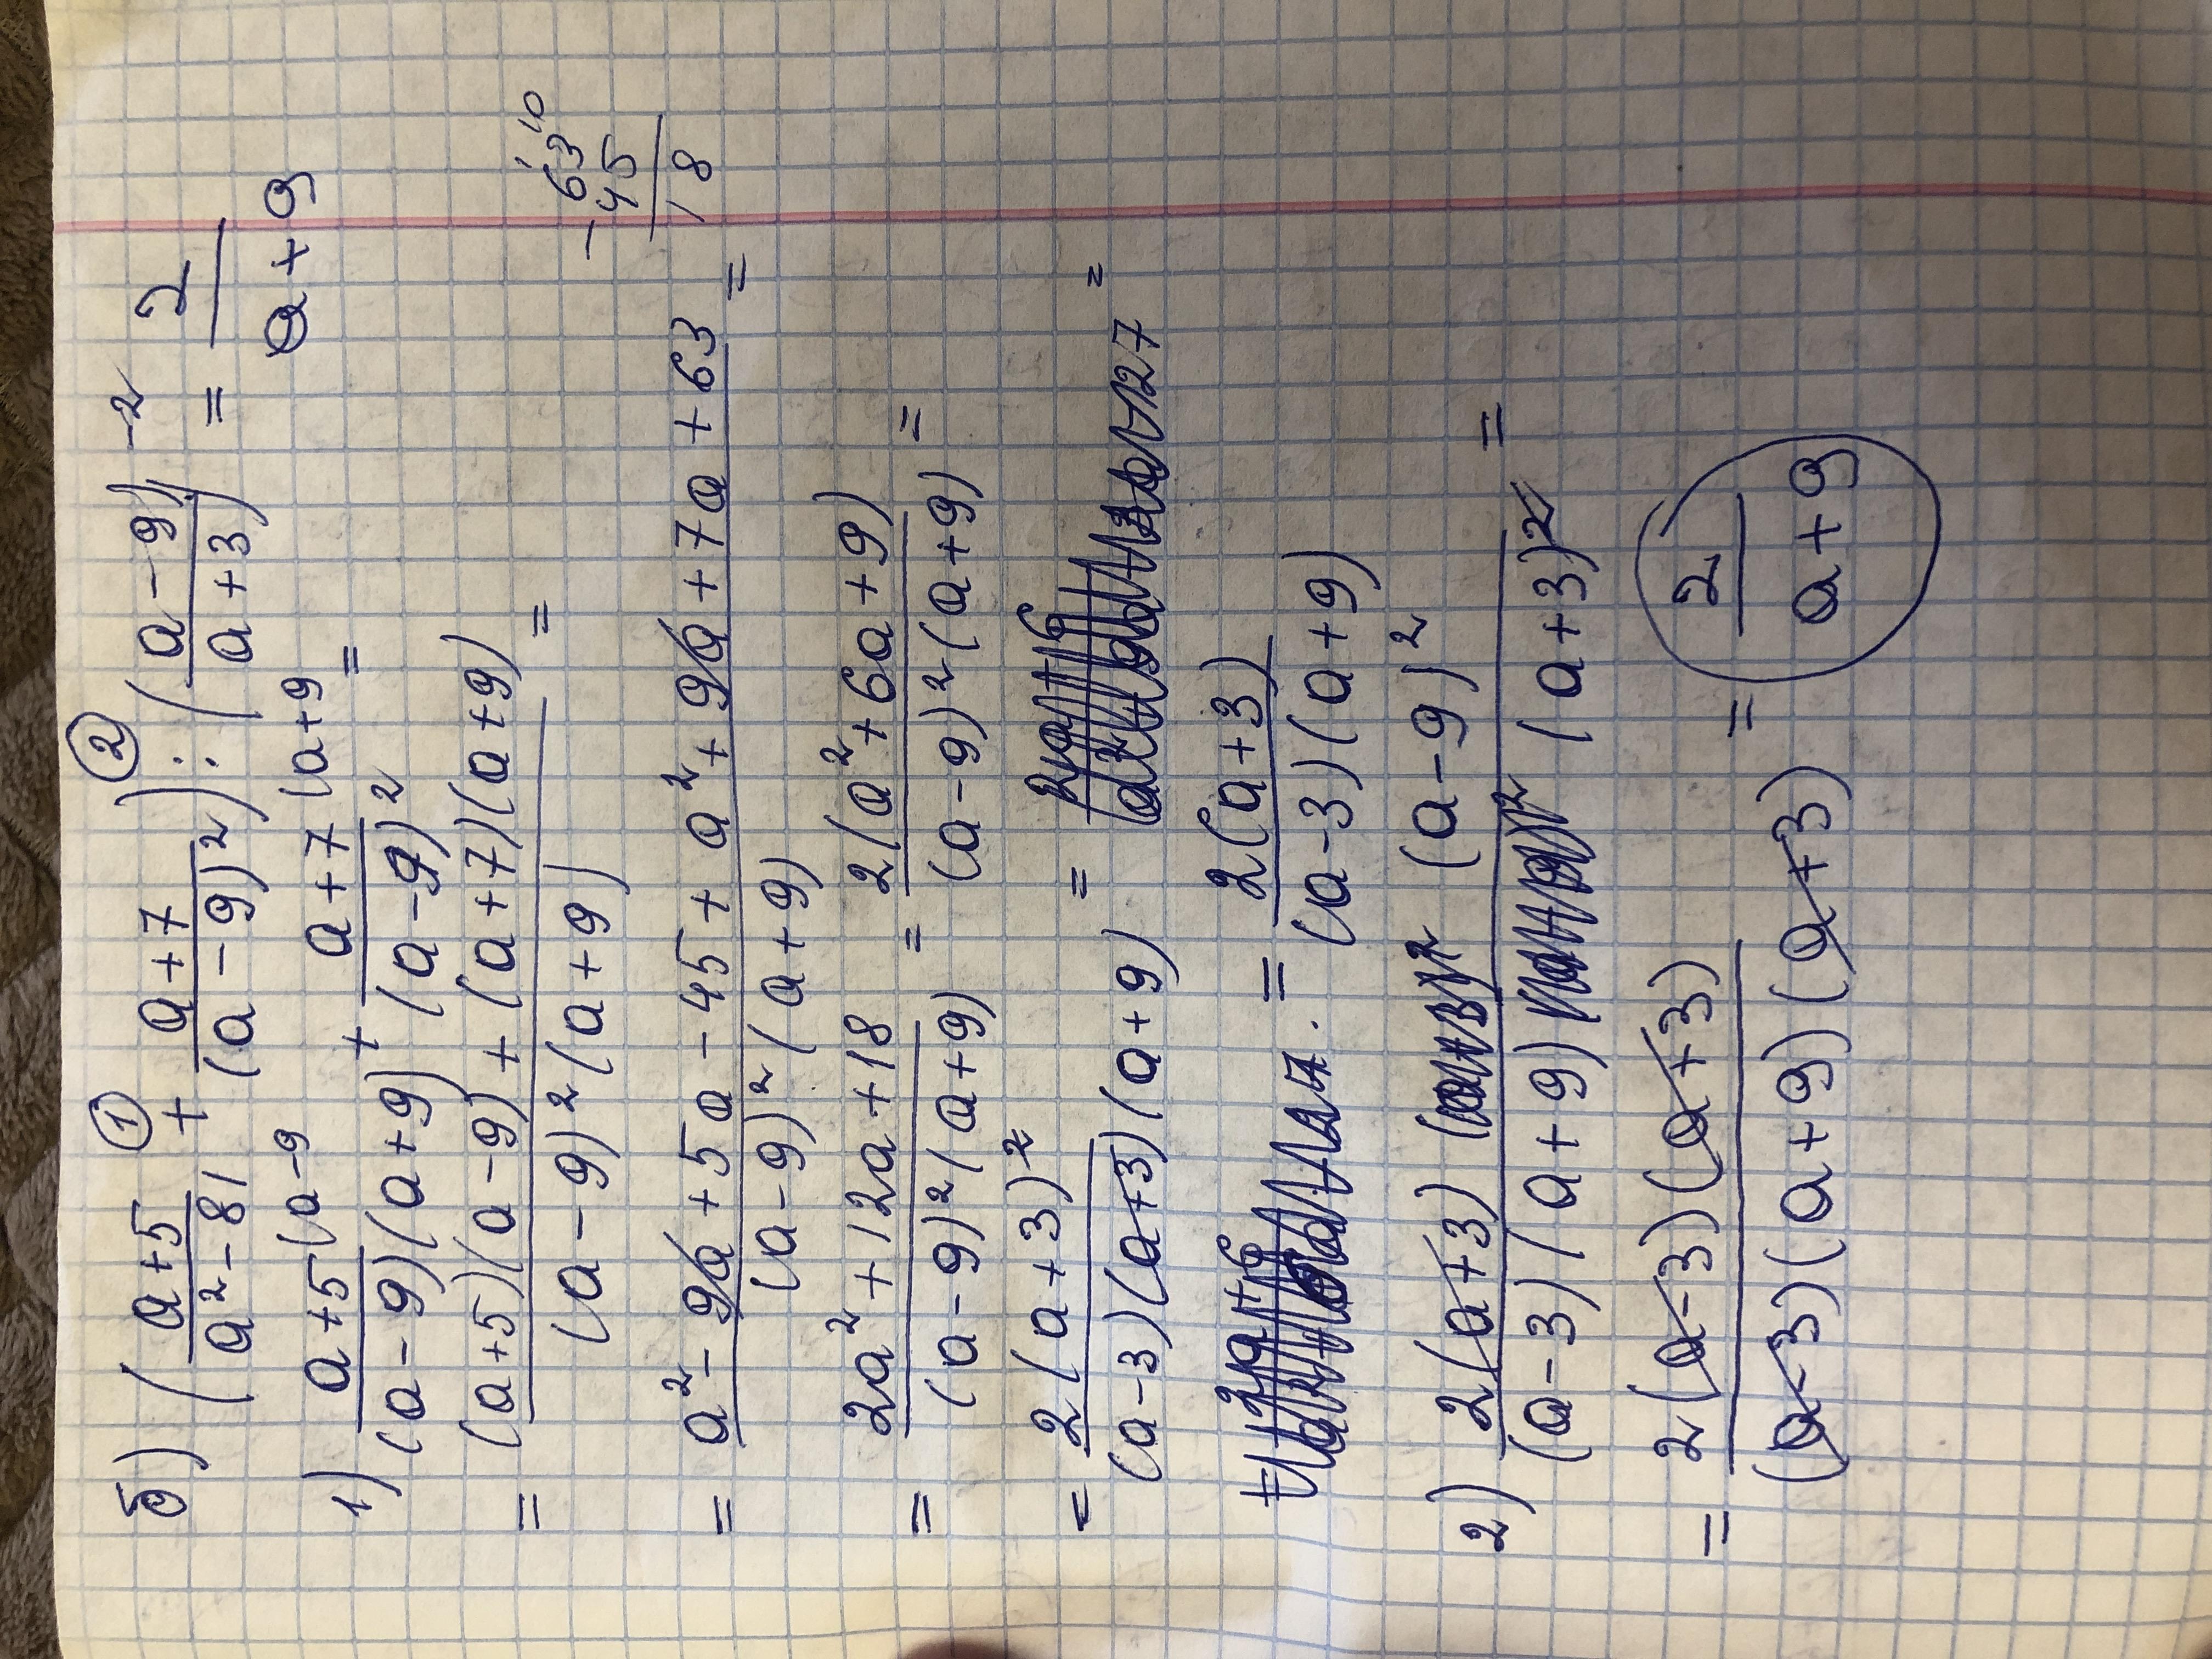 б) ((a+5)/(a²-81) + (a+7)/(a-9)²) : ((a-9)/(a+3))⁻² = 2/(a+9)
① ②
1) (a+5)/((a-9)(a+9)) (a-9 + (a+7)/(a-9)² (a+9 =
= ((a+5)(a-9)+(a+7)(a+9))/((a-9)²(a+9)) =
-63 10
45
18
= (a²-9a+5a-45+a²+9a+7a+63)/((a-9)²(a+9)) =
= (2a²+12a+18)/((a-9)²(a+9)) = 2(a²+6a+9)/((a-9)²(a+9)) =
= 2(a+3)²/((a-3)(a+3)(a+9)) = =
= 2(a+3)/((a-3)(a+9))
2) 2(a+3)/((a-3)(a+9)) (a-9)²/(a+3)² =
= 2(a-3)(a+3)/((a-3)(a+9)(a+3)) = 2/(a+9)